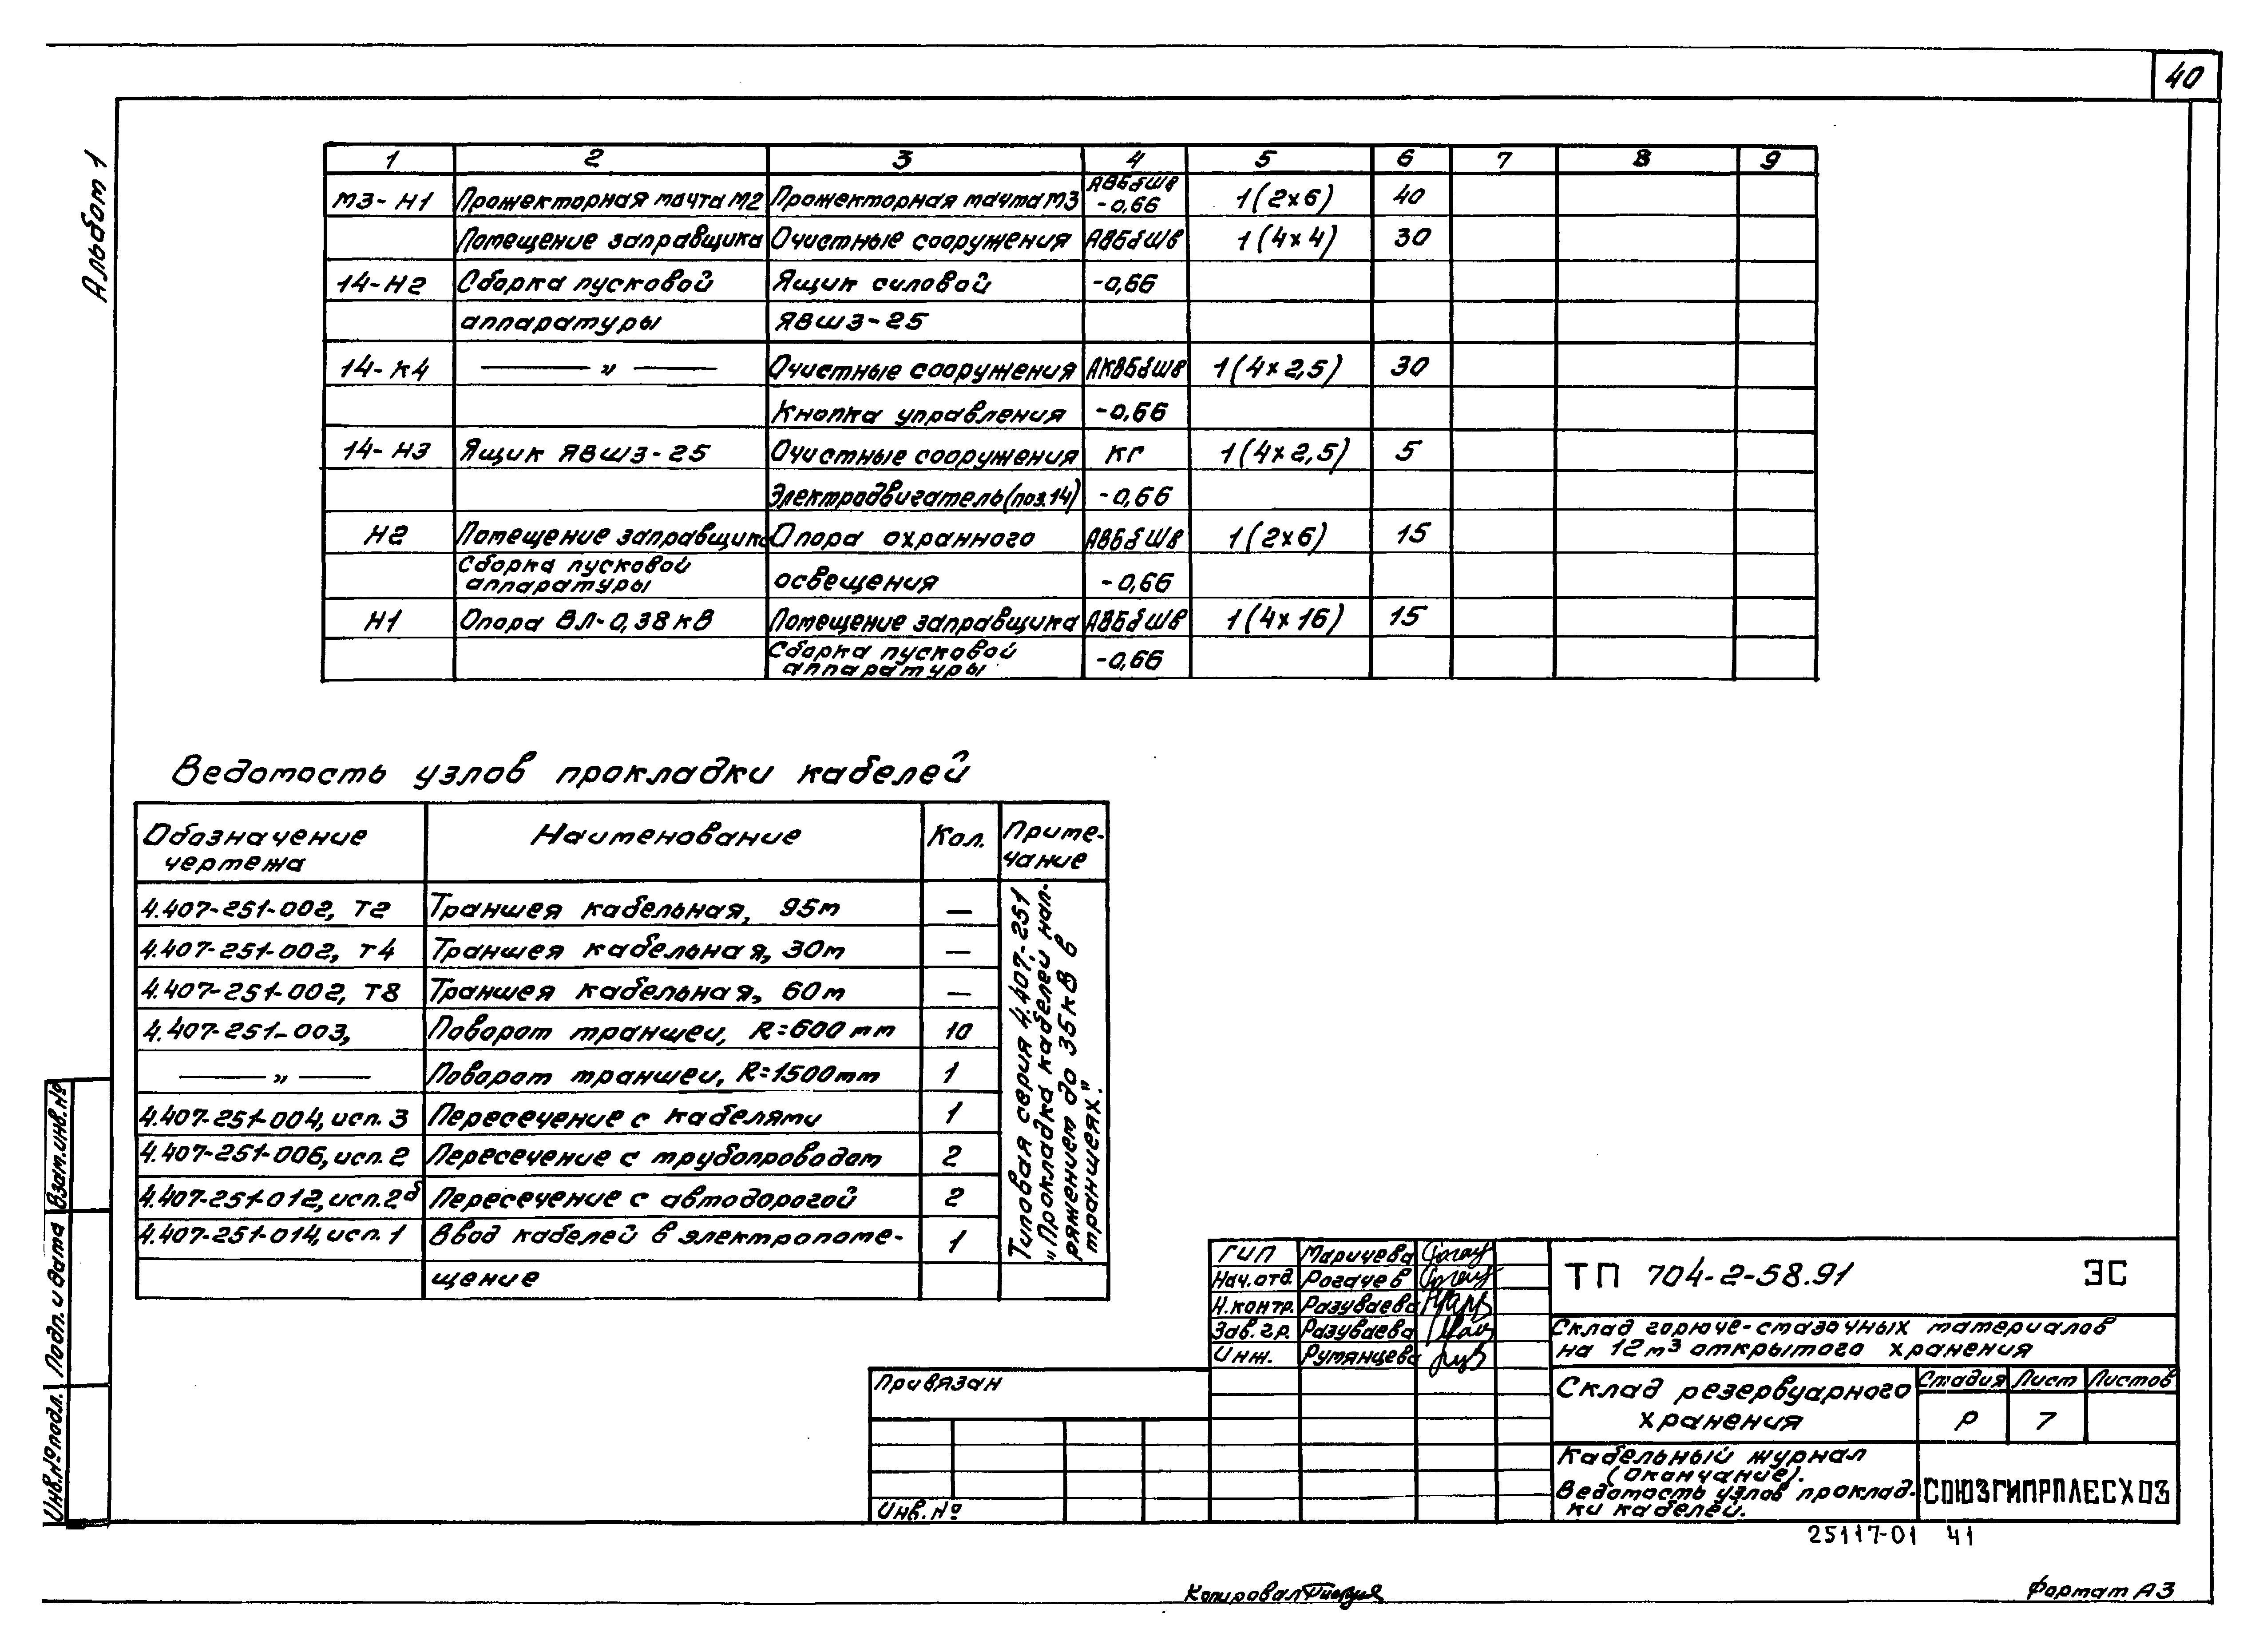 40
Альбом 1
1 2 3 4 5 6 7 8 9
М3-Н1 Прожекторная мачта М2 Прожекторная мачта М3 АВБбШв -0,66 1(2×6) 40
Помещение заправщика Очистные сооружения АВБбШв 1(4×4) 30
14-Н2 Сборка пусковой Ящик силовой -0,66
аппаратуры ЯВШ3-25
14-К4 — " — Очистные сооружения АКВБбШв 1(4×2,5) 30
Кнопка управления -0,66
14-Н3 Ящик ЯВШ3-25 Очистные сооружения КГ 1(4×2,5) 5
Электродвигатель(поз.14) -0,66
Н2 Помещение заправщика Опора охранного АВБбШв 1(2×6) 15
Сборка пусковой аппаратуры освещения -0,66
Н1 Опора ВЛ-0,38кВ Помещение заправщика АВБбШв 1(4×16) 15
Сборка пусковой аппаратуры -0,66
Ведомость узлов прокладки кабелей
Обозначение чертежа Наименование Кол. Приме-чание
4.407-251-002, Т2 Траншея кабельная, 95м —
4.407-251-002, Т4 Траншея кабельная, 30м —
4.407-251-002, Т8 Траншея кабельная, 60м —
4.407-251-003, Поворот траншеи, R=600мм 10
— " — Поворот траншеи, R=1500мм 1
4.407-251-004, исп. 3 Пересечение с кабелями 1
4.407-251-006, исп. 2 Пересечение с трубопроводом 2
4.407-251-012, исп. 2б Пересечение с автодорогой 2
4.407-251-014, исп. 1 Ввод кабелей в электропоме- 1
щение
Типовая серия 4.407-251
„Прокладка кабелей нап-
ряжением до 35кВ в
траншеях."
Взам.инв.№
Подп. и дата
Инв.№ подл.
ГИП Маричева
Нач.отд. Рогачев
Н.контр. Разуваева
Зав.гр. Разуваева
Инж. Румянцева
Привязан
Инв.№
ТП 704-2-58.91 ЭС
Склад горюче-смазочных материалов
на 12м³ открытого хранения
Склад резервуарного
хранения
Стадия Лист Листов
Р 7
Кабельный журнал
(окончание).
Ведомость узлов проклад-
ки кабелей.
СОЮЗГИПРОЛЕСХОЗ
25117-01 41
Копировал
Формат А3